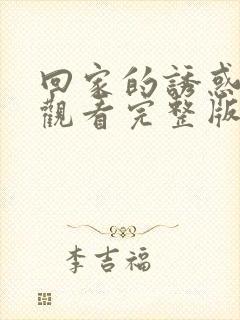 回家的誘惑
觀看完整版
李吉福